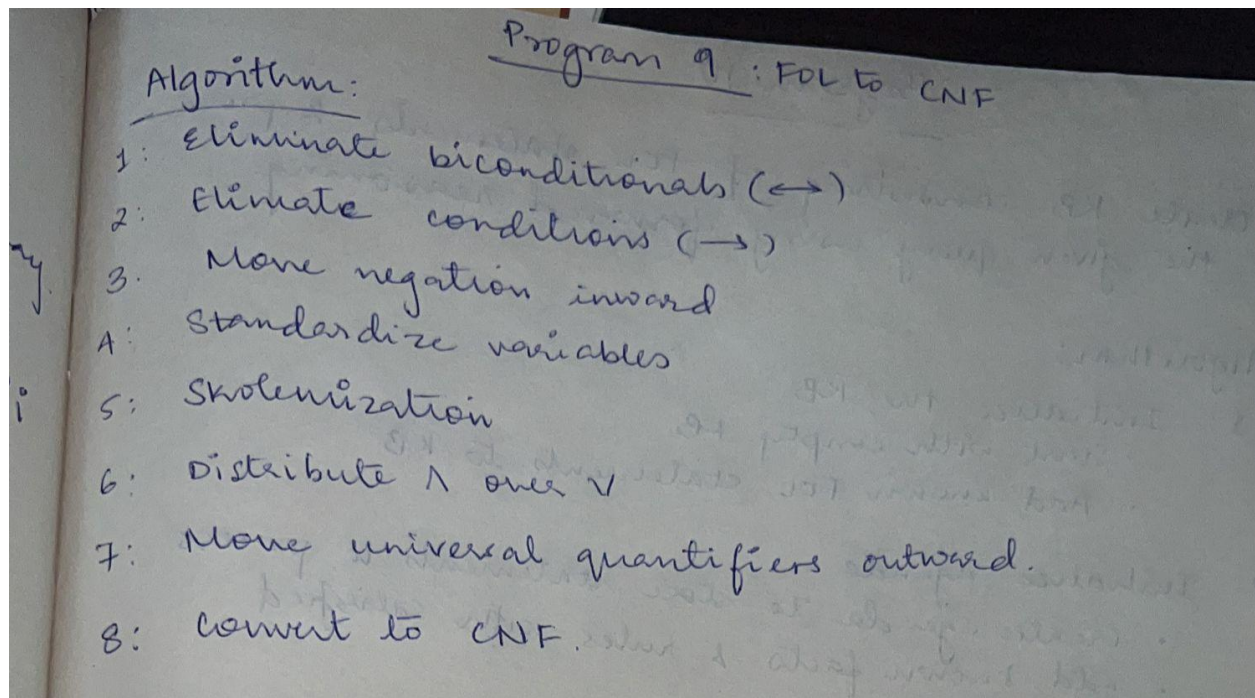 Program 9 : FOL to CNF
Algorithm:
1: Eliminate biconditionals (↔)
2: Elimate conditions (→)
3. Move negation inward
4: Standardize variables
5: Skolemization
6: Distribute ∧ over ∨
7: Move universal quantifiers outward.
8: Convert to CNF.